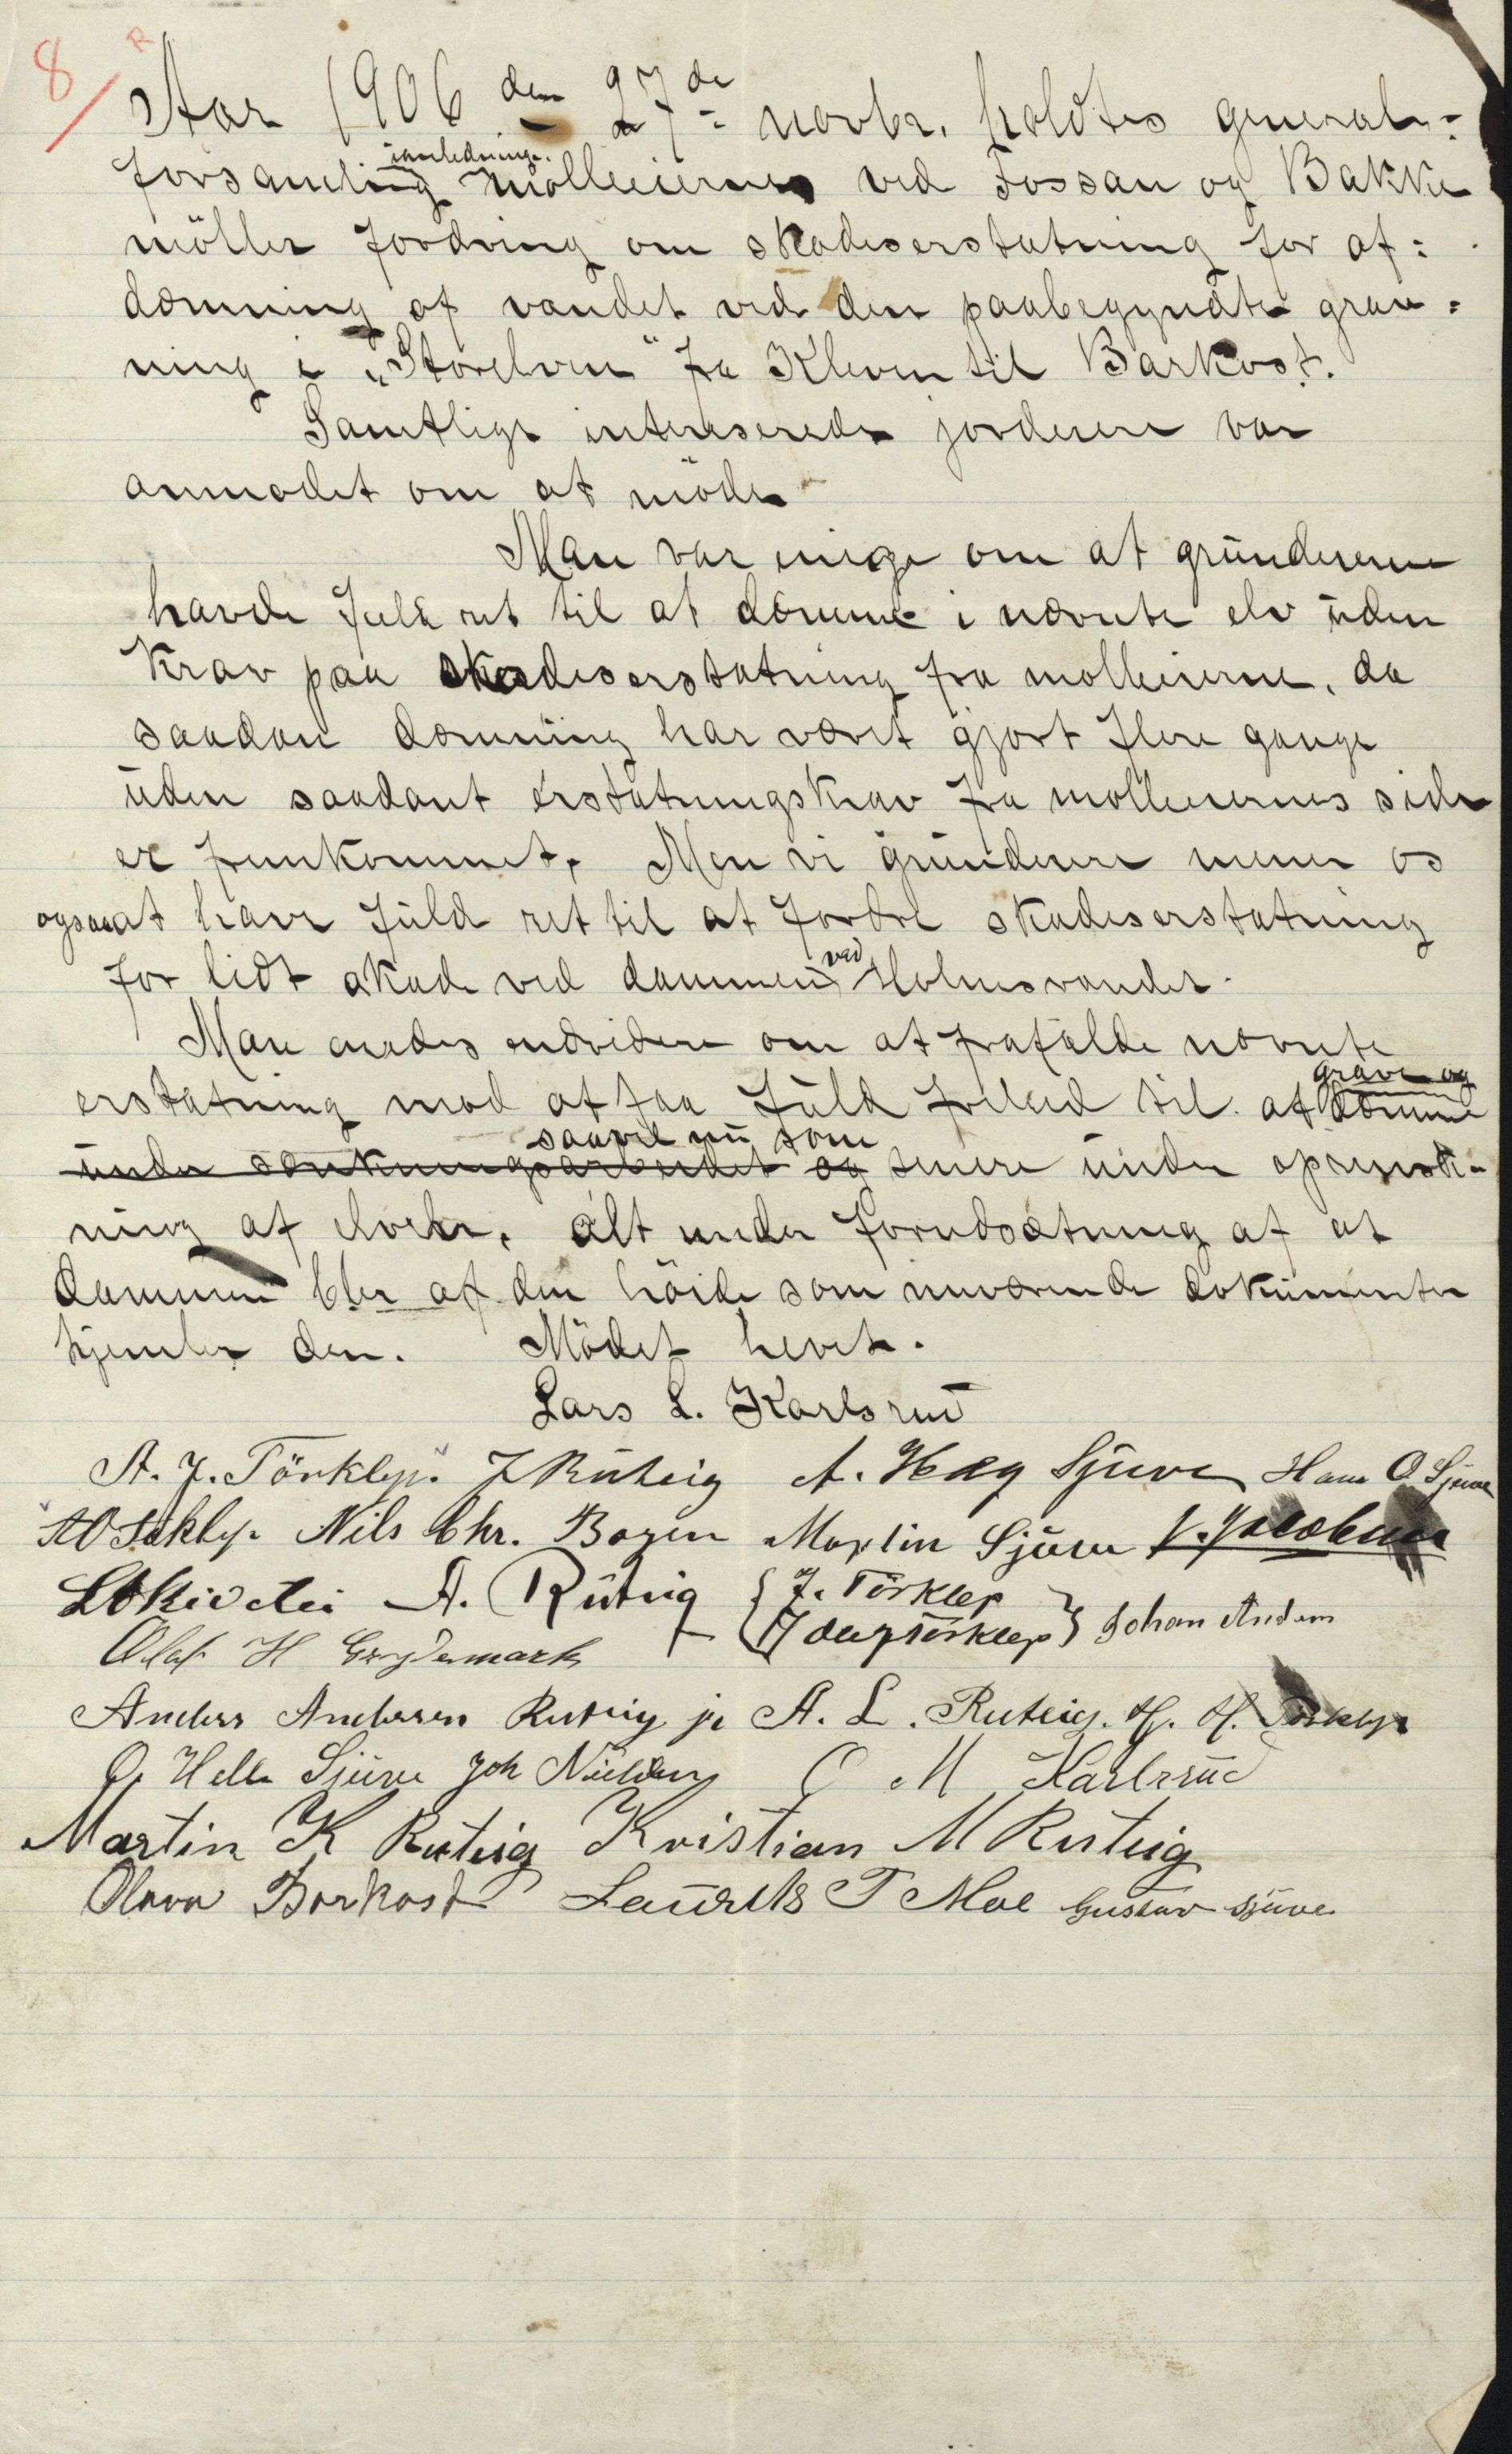 8/ R
Aar 1906 den 27de novbr. holdtes general=
forsamling ianledninge. mølleiernes ved Fossan og Bakke
möller fordring om skadeserstatning for af=
dæmning af vandet ved den paabegyndte grav=
ning i „Storelven“ fra Kleven til Barkost.
Samtlige interesserede jordeiere var
anmodet om at møde
Man var enige om at grundeierne
havde fuld ret til at dæmme i nævnte elv uden
Krav paa skadeserstatning fra mølleierne, da
saadan dæmning har været gjort flere gange
uden saadant erstatningskrav fra mølleiernes side
er fremkommet. Men vi grundeiere mener os
ogsaa at have fuld ret til at fordre skadeserstatning
for lidt skade ved dammen ved Holmsvandet.
Man enedes endvidere om at frafalde nævnte
erstatning mod at faa fuld frihed til at grave og dæmme
under sænkningsarbeidet og saavel nu som senere under oprensk=
ning af elven, alt under forudsætning af at
dammen bler af den høide som nuværende dokumenter
hjemler den. Mödet hevet.
Lars L. Karlsrud
A. J. Törklep. J Ruteig A. Hæg Sjuve Hans O. Sjuve
Nils Chr. Bogen Martin Sjuve J. Jacobsen
A. Ruteig { J. Törklep
Törklep } Johan Anders
Olaf H
Anders Andersen Ruteig jr A. L. Ruteig. H. H. Törklep
O. Helle Sjuve Joh O M Karlsrud
Martin K Ruteig Kristian M Ruteig
Olava Borkost Laurits T Moe Gustav Sjuve